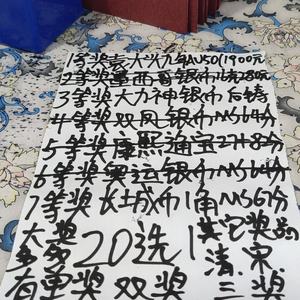 1等奖袁大头九年AU50(1900元
2等奖墨西哥银币1盎280元
3等奖大力神银币后铸
4等奖双凤银币MS64分
5等奖康熙通宝27+82分
6等奖奥运银币MS64分
7等奖长城币1角MS67分
大奖 20选1 其它奖品
多或 清宋
有重奖 双奖 三奖